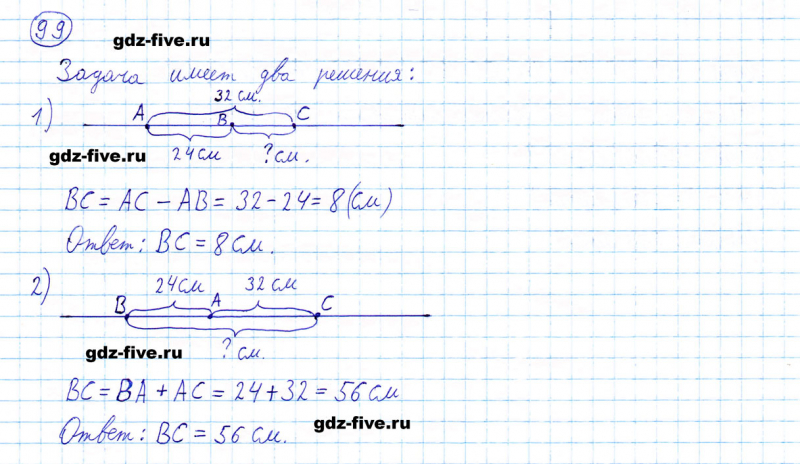 99
gdz-five.ru
Задача имеет два решения:
1)
32 см.
A B C
gdz-five.ru
24 см ? см.
BC = AC - AB = 32 - 24 = 8 (см)
Ответ: BC = 8 см.
2)
24 см 32 см
B A C
gdz-five.ru
? см.
BC = BA + AC = 24 + 32 = 56 см
Ответ: BC = 56 см.
gdz-five.ru